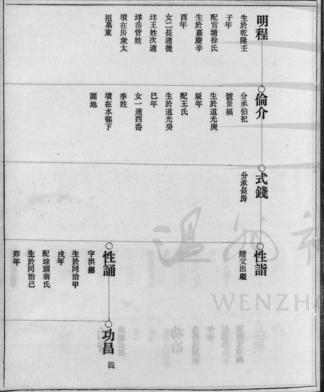 明程
生於乾隆壬
子年
配官塘徐氏
生於嘉慶辛
酉年
女二長適後
垟王姓次適
垟岙管姓
墳在房衆太
祖墓東
倫介
分承伯祀
號景福
生於道光庚
辰年
配王氏
生於道光癸
巳年
女一適西岙
季姓
墳在水碓下
園地
式錢
分承長房
性詣
隨父出繼
性誦
字洪德
生於同治甲
戌年
配埭頭翁氏
生於同治己
卯年
功昌
提
溫州
WENZHO